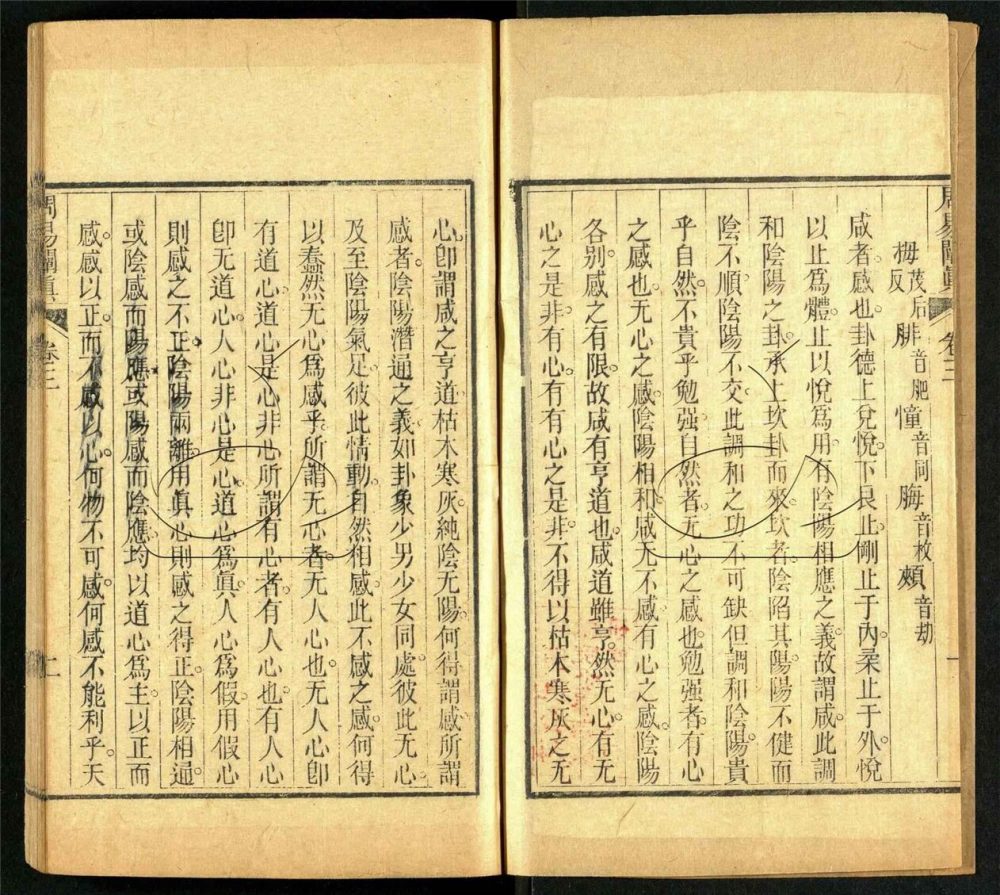 周易闡真 卷三 一
梅茂后反 腓音肥 憧音同 脢音枚 頰音劫
咸者感也卦德上兌悅下艮止剛止于內柔止于外悅
以止為體止以悅為用有陰陽相應之義故謂咸此調
和陰陽之卦承上坎卦而來坎者陰陷其陽陽不健而
陰不順陰陽不交此調和之功不可缺但調和陰陽貴
乎自然不貴乎勉强自然者无心之感也勉强者有心
之感也无心之感陰陽相和咸无不感有心之感陰陽
各別感之有限故咸有亨道也咸道雖亨然无心有无
心之是非有心有有心之是非不得以枯木寒灰之无
心卽謂咸之亨道枯木寒灰純陰无陽何得謂感所謂
感者陰陽潛通之義如卦象少男少女同處彼此无心
及至陰陽氣足彼此情動自然相感此不感之感何得
以蠢然无心為感乎所謂无心者无人心也无人心卽
有道心道心是心非心所謂有心者有人心也有人心
卽无道心人心非心是心道心為眞人心為假用假心
則感之不正陰陽兩離用眞心則感之得正陰陽相通
或陰感而陽應或陽感而陰應均以道心為主以正而
感感以正而不感以心何物不可感何感不能利乎天
周易闡眞 卷三